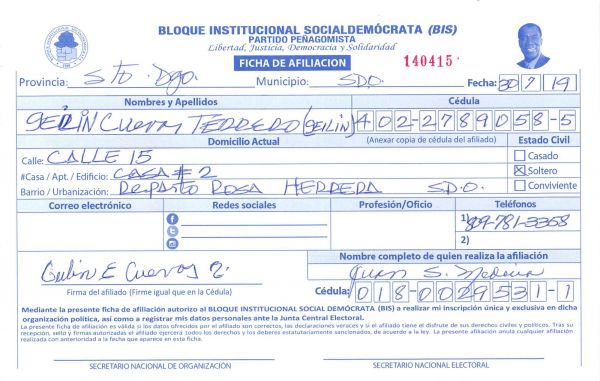 BLOQUE INSTITUCIONAL SOCIALDEMÓCRATA (BIS)
PARTIDO PEÑAGOMISTA
Libertad, Justicia, Democracia y Solidaridad
FICHA DE AFILIACION
140415
Provincia: Sto Dgo. Municipio: SDO. Fecha: 30/7/19
Nombres y Apellidos Cédula
GEILIN Cuevas TERRERO (GEILIN) 402-2789058-5
Domicilio Actual (Anexar copia de cédula del afiliado) Estado Civil
Calle: CALLE 15 Casado
#Casa / Apt. / Edificio: CASA # 2 Soltero
Barrio / Urbanización: Reparto ROSA HERRERA SDO. Conviviente
Correo electrónico Redes sociales Profesión/Oficio Teléfonos
1) 809-781-3368
2)
Nombre completo de quien realiza la afiliación
E Cuevas
Juan S. Medina
Firma del afiliado (Firme igual que en la Cédula) Cédula: 018-0029531-1
Mediante la presente ficha de afiliación autorizo al BLOQUE INSTITUCIONAL SOCIAL DEMÓCRATA (BIS) a realizar mi inscripción única y exclusiva en dicha
organización política, así como a registrar mis datos personales ante la Junta Central Electoral.
La presente ficha de afiliación es válida si los datos ofrecidos por el afiliado son correctos, las declaraciones veraces y si el afiliado tiene el disfrute de sus derechos civiles y políticos. Tras su
recepción, sello y firmas autorizadas el afiliado ejercerá todos los derechos y los deberes estatutariamente sancionados, de acuerdo a la ley. La presente afiliación anula cualquier afiliación
realizada con anterioridad a la fecha que aparece en esta ficha.
SECRETARIO NACIONAL DE ORGANIZACIÓN SECRETARIO NACIONAL ELECTORAL